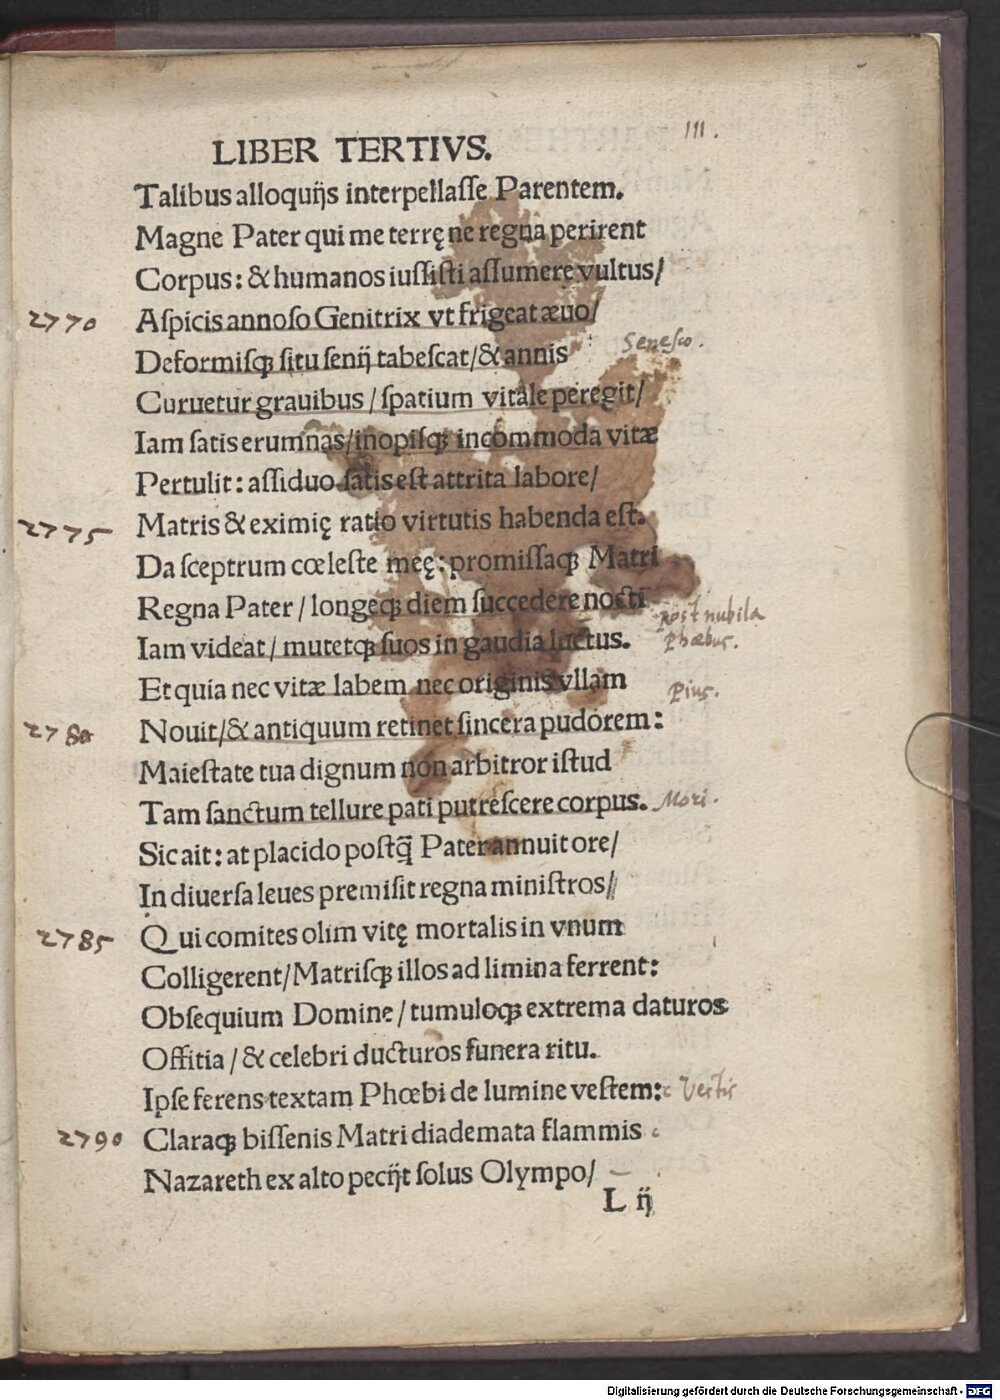 III.
LIBER TERTIVS.
Talibus alloquijs interpellaſſe Parentem.
Magne Pater qui me terrę ne regna perirent
Corpus: & humanos iuſſiſti aſſumere vultus/
2770 Aſpicis annoſo Genitrix vt frigeat æuo/
Deformiſqꝫ ſitu ſenij tabeſcat/& annis Seneſco.
Curuetur grauibus/ſpatium vitale peregit/
Iam ſatis erumnas/inopiſqꝫ incommoda vitæ
Pertulit: aſſiduo ſatis eſt attrita labore/
2775 Matris & eximię ratio virtutis habenda eſt.
Da ſceptrum cœleſte meę: promiſſaqꝫ Matri
Regna Pater/longeqꝫ diem ſuccedere nocti post nubila
Iam videat/mutetqꝫ ſuos in gaudia luctus. Phœbus.
Et quia nec vitæ labem nec originis vllam Pius.
2780 Nouit/& antiquum retinet ſincera pudorem:
Maieſtate tua dignum non arbitror iſtud
Tam ſanctum tellure pati putreſcere corpus. Mori.
Sic ait: at placido poſtq̃ Pater annuit ore/
In diuerſa leues premiſit regna miniſtros/
2785 Qui comites olim vitę mortalis in vnum
Colligerent/Matriſqꝫ illos ad limina ferrent:
Obſequium Domine/tumuloqꝫ extrema daturos
Offitia/& celebri ducturos funera ritu.
Ipſe ferens textam Phœbi de lumine veſtem: Vertis
2790 Claraqꝫ biſſenis Matri diademata flammis
Nazareth ex alto pecijt ſolus Olympo/
L ij
Digitalisierung gefördert durch die Deutsche Forschungsgemeinschaft - DFG